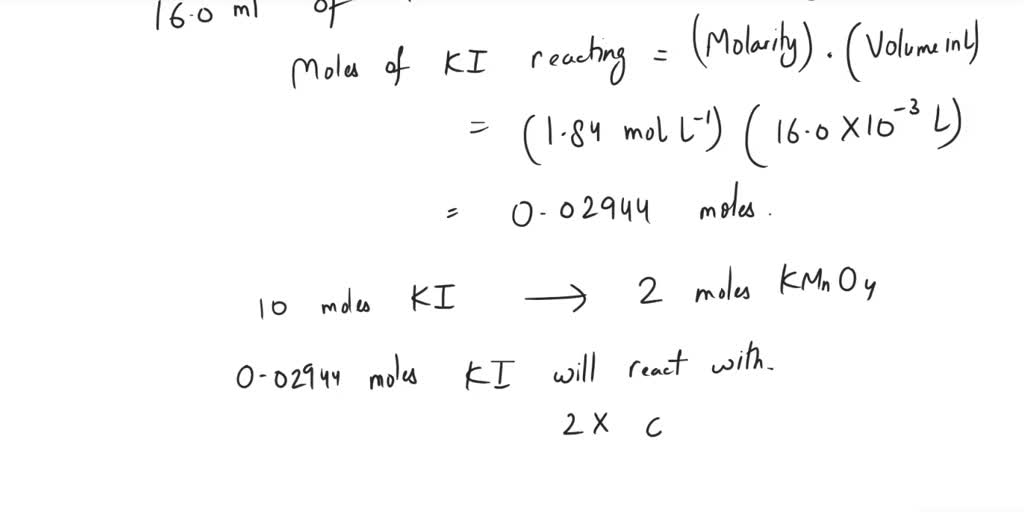 16.0 ml of
Moles of KI reacting = (Molarity) . (Volume in L)
= (1.84 mol L⁻¹) (16.0 X10⁻³ L)
= 0.02944 moles.
10 moles KI → 2 moles KMnO4
0.02944 moles KI will react with.
2 X